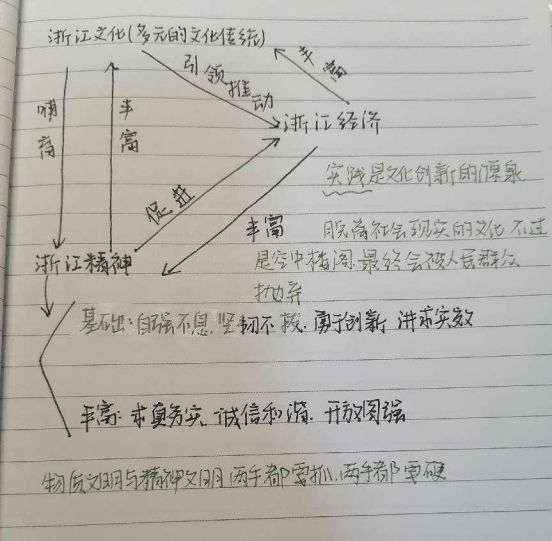 浙江文化(多元的文化传统)
引领推动
丰富
哺育
丰富
浙江经济
实践是文化创新的源泉
促进
丰富
脱离社会现实的文化不过
是空中楼阁.最终会被人民群众
抛弃
浙江精神
基础:自强不息.坚韧不拔.勇于创新 讲求实效
丰富:求真务实.诚信和谐.开放图强
物质文明与精神文明 两手都要抓.两手都要硬